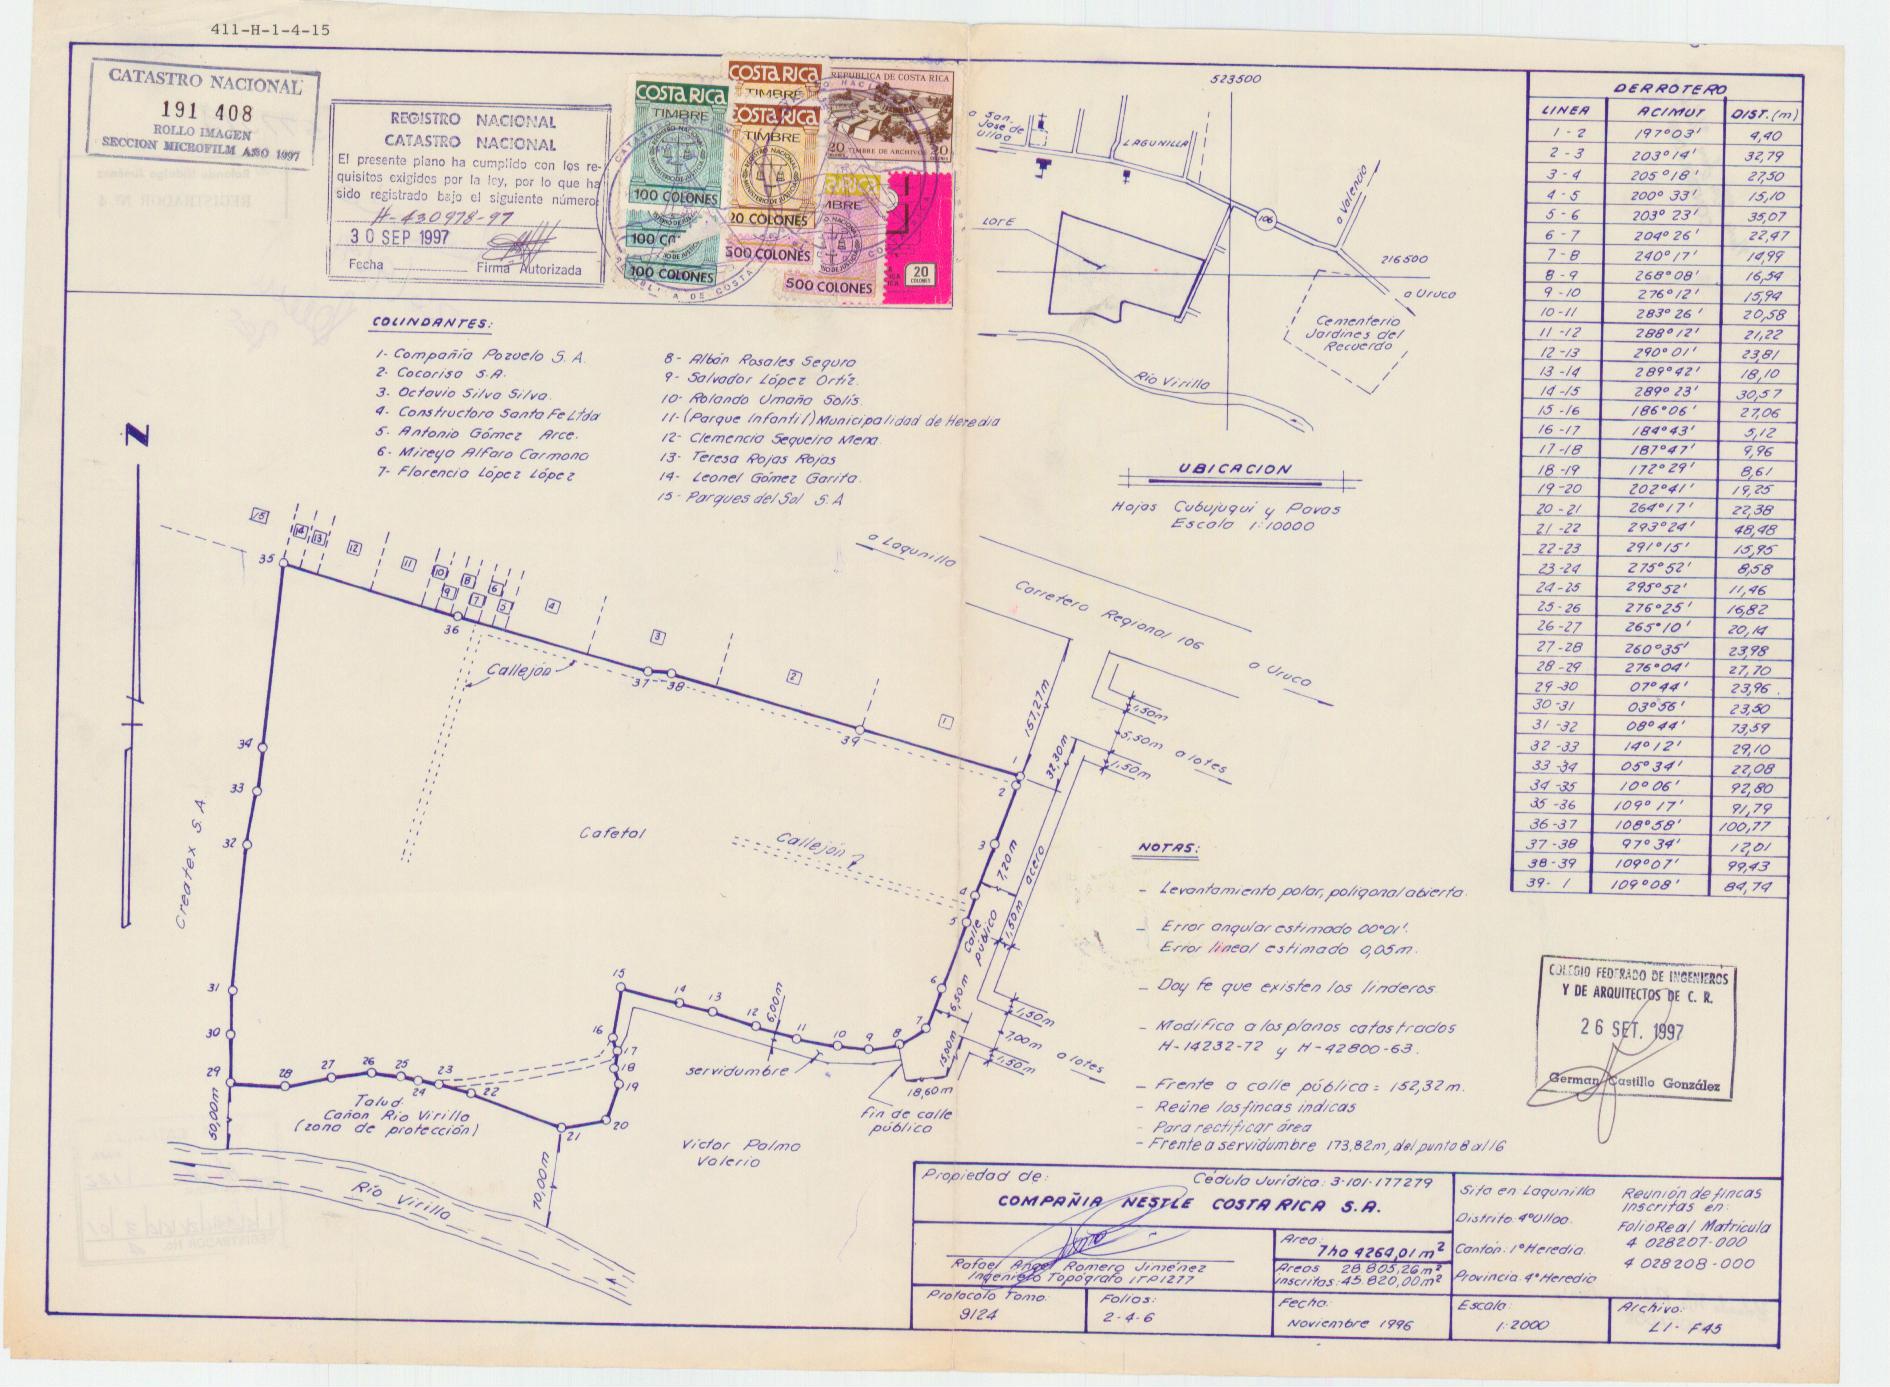 411-H-1-4-15
CATASTRO NACIONAL
191 408
ROLLO IMAGEN
SECCION MICROFILM AÑO 1997
REGISTRO NACIONAL
CATASTRO NACIONAL
El presente plano ha cumplido con los re-
quisitos exigidos por la ley, por lo que ha
sido registrado bajo el siguiente número:
H-430978-97
30 SEP 1997
Fecha Firma Autorizada
COSTA RICA
TIMBRE
100 COLONES
100 CO
100 COLONES
COSTA RICA
TIMBRE
COSTA RICA
TIMBRE
20 COLONES
500 COLONES
REPUBLICA DE COSTA RICA
20 TIMBRE DE ARCHIVOS 20
500 COLONES
20
COLONES
COLINDANTES:
1- Compañía Pozuelo S.A.
2- Cocorisa S.A.
3- Octavio Silva Silva.
4- Constructora Santa Fe Ltda
5- Antonio Gómez Arce.
6- Mireya Alfaro Carmona
7- Florencia López López
8- Albán Rosales Segura
9- Salvador López Ortíz.
10- Rolando Umaña Solís.
11- (Parque Infantil) Municipalidad de Heredia
12- Clemencia Sequeira Mena
13- Teresa Rojas Rojas
14- Leonel Gómez Garita.
15- Parques del Sol S.A
523500
a San
José de
Ulloa
LAGUNILLA
LOTE
106
a Valencia
216500
a Uruca
Cementerio
Jardines del
Recuerdo
Río Virilla
UBICACION
Hojas Cubujuquí y Pavas
Escala 1:10000
DERROTERO
LINEA ACIMUT DIST.(m)
1-2 197°03' 4,40
2-3 203°14' 32,79
3-4 205°18' 27,50
4-5 200°33' 15,10
5-6 203°23' 35,07
6-7 204°26' 22,47
7-8 240°17' 14,99
8-9 268°08' 16,54
9-10 276°12' 15,94
10-11 283°26' 20,58
11-12 288°12' 21,22
12-13 290°01' 23,81
13-14 289°42' 18,10
14-15 289°23' 30,57
15-16 186°06' 27,06
16-17 184°43' 5,12
17-18 187°47' 9,96
18-19 172°29' 8,61
19-20 202°41' 19,25
20-21 264°17' 22,38
21-22 293°24' 48,48
22-23 291°15' 15,95
23-24 275°52' 8,58
24-25 295°52' 11,46
25-26 276°25' 16,82
26-27 265°10' 20,14
27-28 260°35' 23,98
28-29 276°04' 27,70
29-30 07°44' 23,96
30-31 03°56' 23,50
31-32 08°44' 73,59
32-33 14°12' 29,10
33-34 05°34' 22,08
34-35 10°06' 92,80
35-36 109°17' 91,79
36-37 108°58' 100,77
37-38 97°34' 12,01
38-39 109°07' 99,43
39-1 109°08' 84,74
N
a Lagunilla
Carretera Regional 106
a Uruca
15
14
13
12
11
10
9
8
7
6
5
4
3
2
1
35
36
37
38
39
Callejón
157,27m
32,30m
1,50m
5,50m a lotes
1,50m
34
33
32
Createx S.A
Cafetal
Callejón
2
3
4
5
7,20m
acera
1,50m
Calle
pública
6
6,50m
7
1,50m
7,00m a lotes
1,50m
31
30
29
28
27
26
25
24
23
22
21
20
19
18
17
16
15
14
13
12
11
10
9
8
6,00m
servidumbre
15,00m
18,60m
Fin de calle
pública
Talud
Cañon Río Virilla
(zona de protección)
50,00m
70,00m
Río Virilla
Víctor Palma
Valerio
NOTAS:
- Levantamiento polar, poligonal abierta.
- Error angular estimado 00°01'.
Error lineal estimado 0,05m.
- Doy fe que existen los linderos
- Modifica a los planos catastrados
H-14232-72 y H-42800-63.
- Frente a calle pública = 152,32m.
- Reúne las fincas indicas
- Para rectificar área
- Frente a servidumbre 173,82m, del punto 8 al 16
COLEGIO FEDERADO DE INGENIEROS
Y DE ARQUITECTOS DE C. R.
26 SET. 1997
German Castillo González
Propiedad de: Cédula Jurídica: 3-101-177279
COMPAÑIA NESTLE COSTA RICA S.A.
Rafael Angel Romero Jiménez
Ingeniero Topógrafo ITP1277
Area:
7ha 4264,01 m²
Areas 28 805,26m²
inscritas: 45 820,00m²
Sita en Lagunilla
Distrito: 4°Ulloa.
Cantón: 1°Heredia.
Provincia: 4°Heredia
Reunión de fincas
inscritas en:
Folio Real Matrícula
4 028207-000
4 028208-000
Protocolo Tomo:
9124
Folios:
2-4-6
Fecha:
Noviembre 1996
Escala:
1:2000
Archivo:
LI-F45